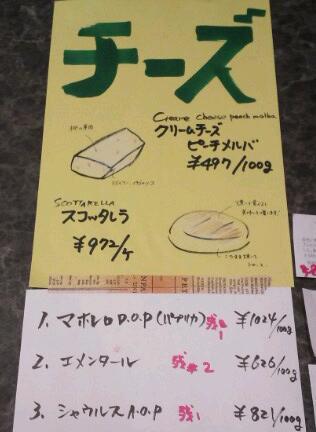 チーズ
Creame cheese peach melba
クリームチーズ
ピーチメルバ
¥497/100g
SCOTTARELLA
スコッタレラ
¥972/ケ
1. マホレロD.O.P(パプリカ) 残1 ¥1024/100g
2. エメンタール 残#2 ¥626/100g
3. シャウルスA.O.P 残1 ¥821/100g